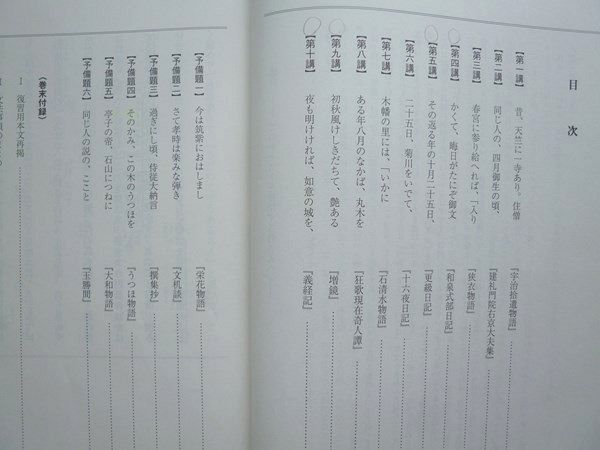 目次
【第一講】 昔、天竺に一寺あり。住僧 『宇治拾遺物語』
【第二講】 同じ人の、四月御生の頃、 『建礼門院右京大夫集』
【第三講】 春宮に参り給へれば、「入り 『狭衣物語』
【第四講】 かくて、晦日がたにぞ御文 『和泉式部日記』
【第五講】 その返る年の十月二十五日、 『更級日記』
【第六講】 二十五日、菊川をいでて、 『十六夜日記』
【第七講】 木幡の里には、「いかに 『石清水物語』
【第八講】 ある年八月のなかば、丸木を 『狂歌現在奇人譚』
【第九講】 初秋風けしきだちて、艶ある 『増鏡』
【第十講】 夜も明ければ、如意の城を、 『義経記』
【予備題一】 今は筑紫におはしまし 『栄花物語』
【予備題二】 さて孝時は楽みな弾き 『文机談』
【予備題三】 過ぎにし頃、侍従大納言 『撰集抄』
【予備題四】 そのかみ、この木のうつほを 『うつほ物語』
【予備題五】 亭子の帝、石山につねに 『大和物語』
【予備題六】 同じ人の説の、ここと 『玉勝間』
〈巻末付録〉
Ⅰ 復習用本文再掲